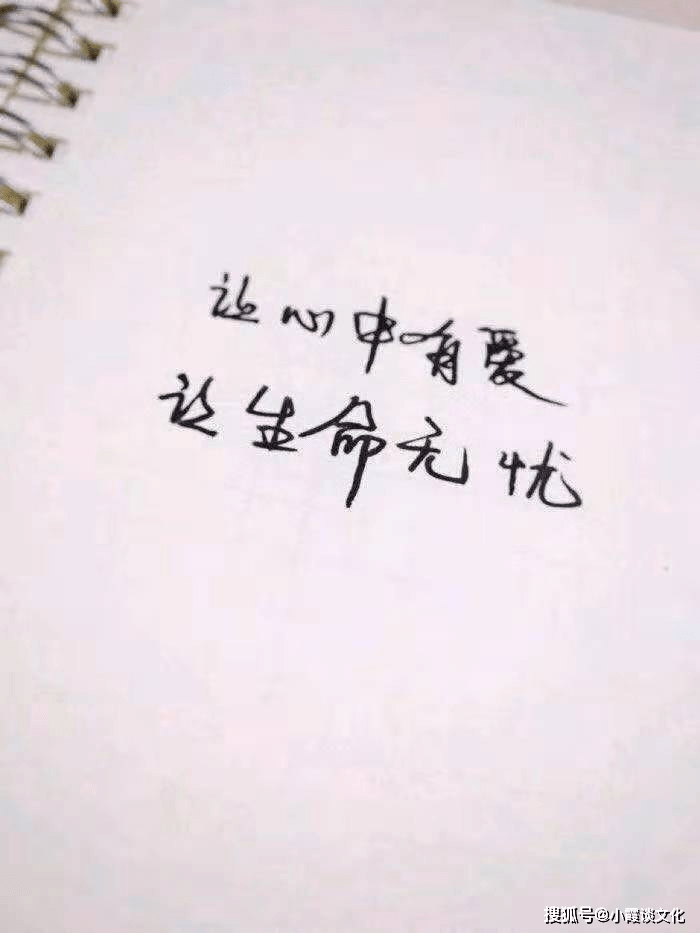 让心中有爱
让生命无忧
搜狐号@小霞谈文化